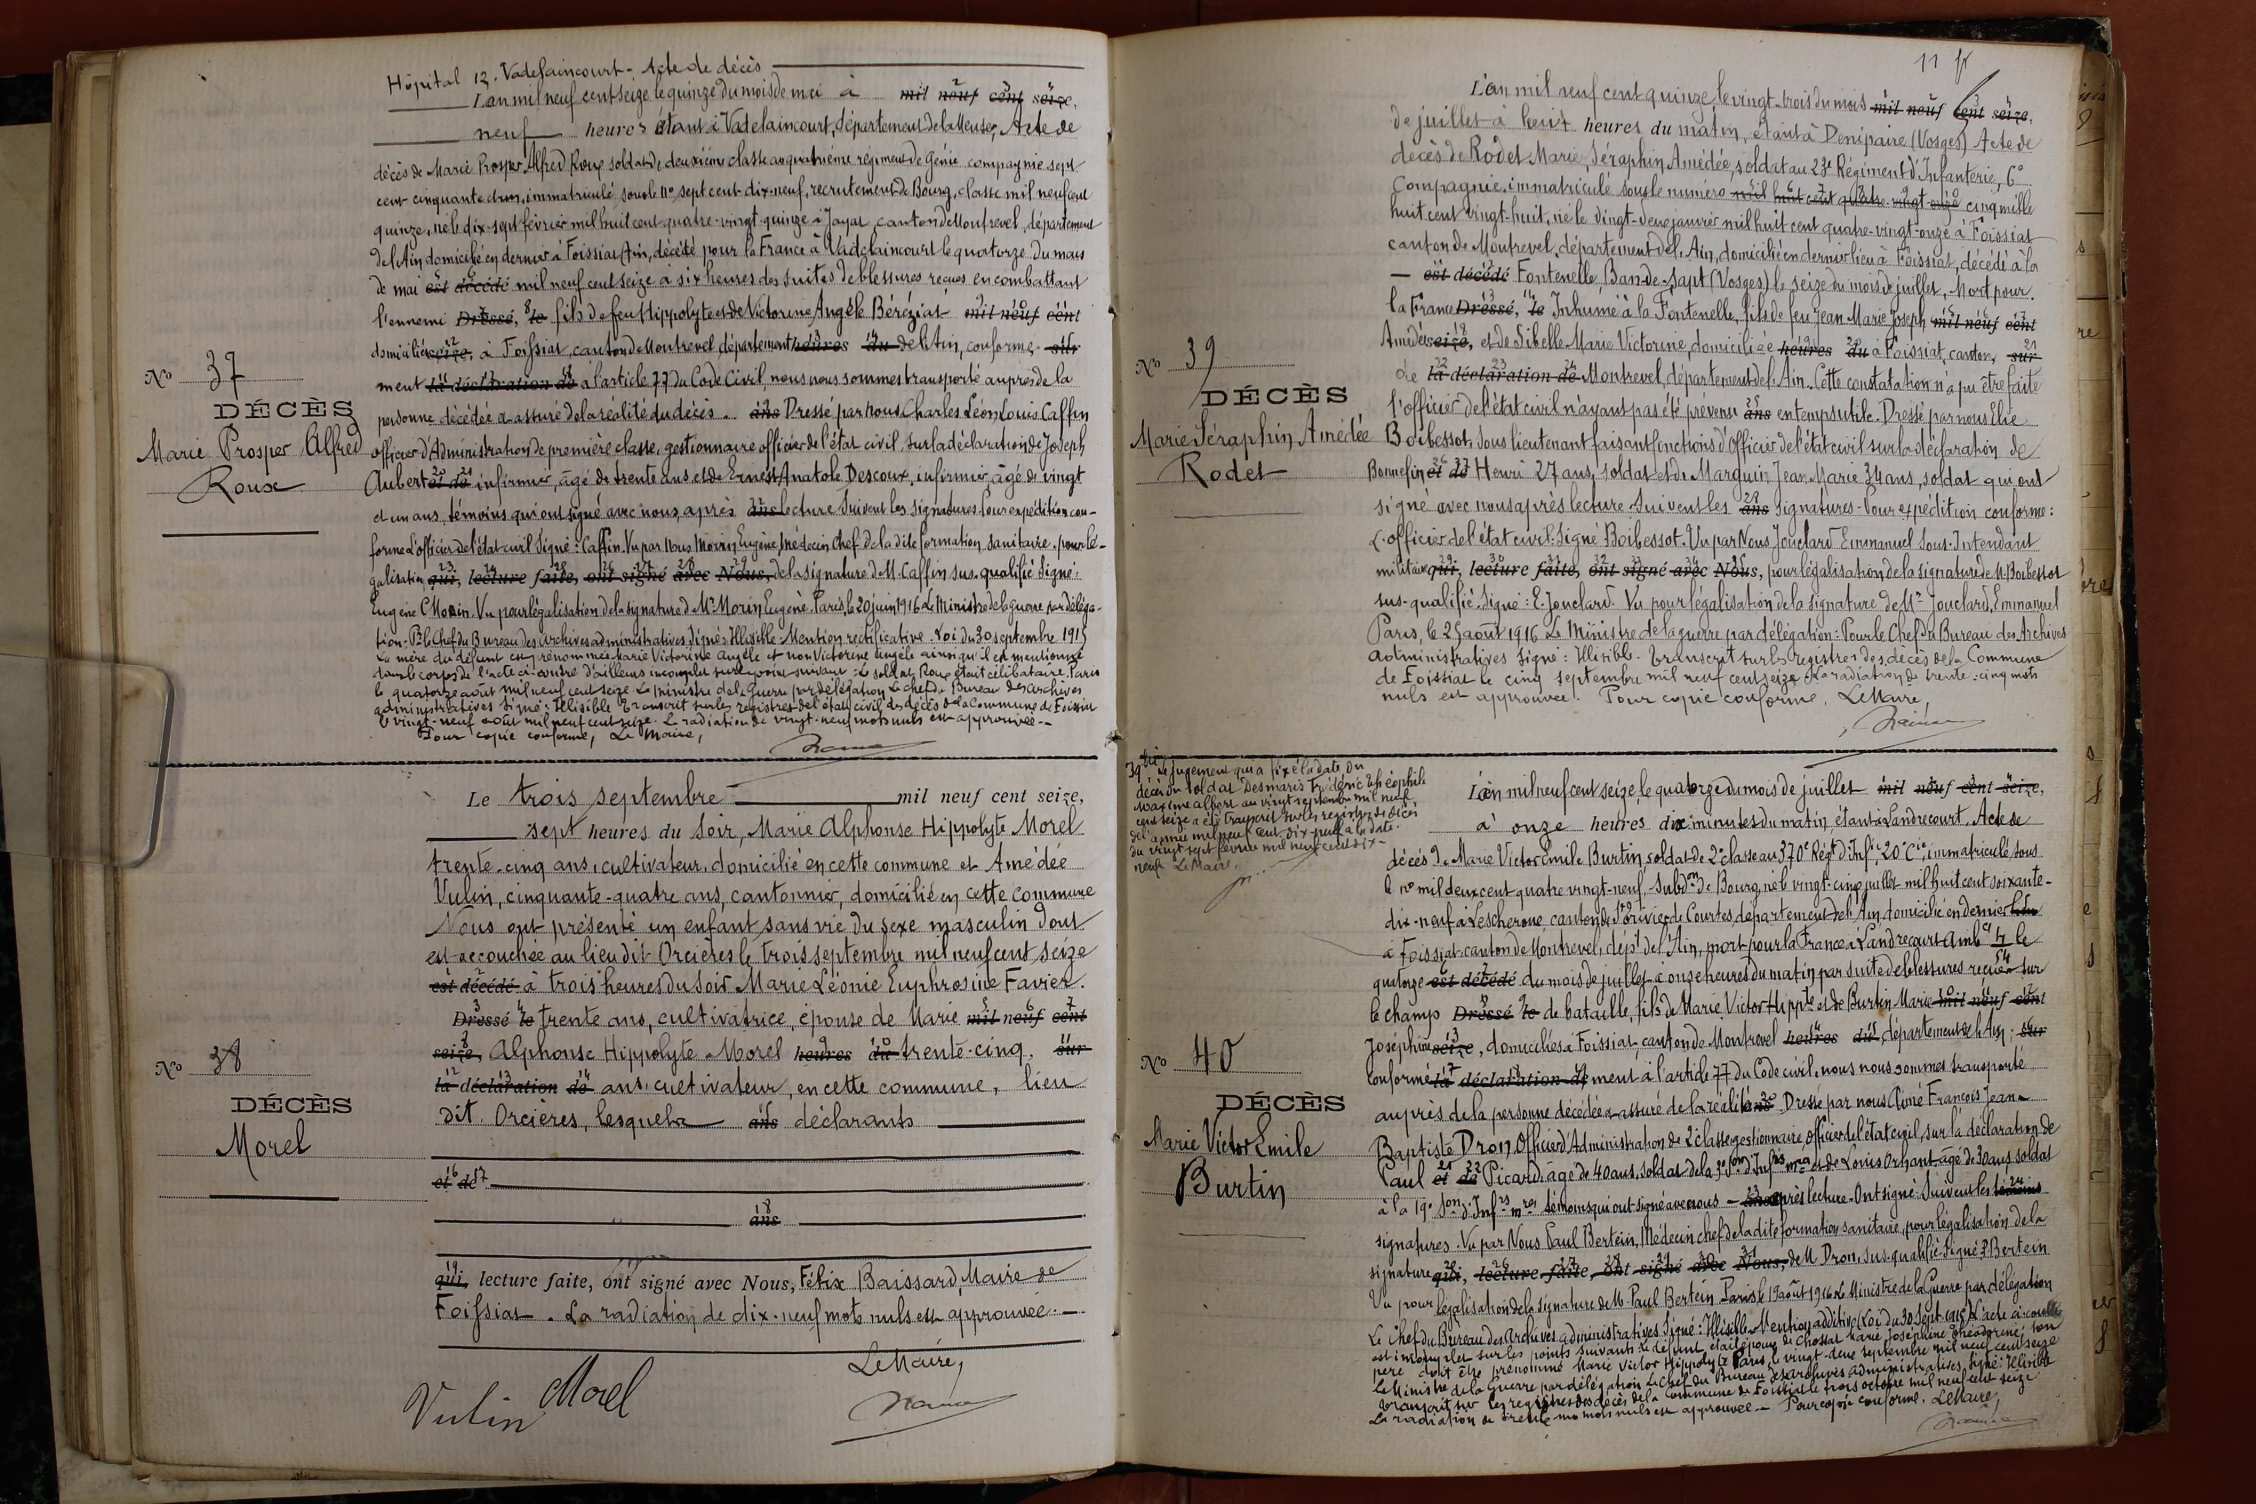 Hôpital 12. Vadelaincourt - Acte de décès
L'an mil neuf cent seize le quinze du mois de mai à mil neuf cent seize,
neuf heures étant à Vadelaincourt, département de la Meuse, Acte de
décès de Marie Prosper Alfred Roux soldat de deuxième classe au quatrième régiment de Génie compagnie sept
cent cinquante et un, immatriculé sous le n° sept cent dix-neuf, recrutement de Bourg, classe mil neuf cent
quinze, né le dix-sept février mil huit cent quatre-vingt-quinze à Jayat canton de Montrevel, département
de l'Ain domicilié en dernier à Foissiat Ain, décédé pour la France à Vadelaincourt le quatorze du mois
de mai est décédé mil neuf cent seize à six heures des suites de blessures reçues en combattant
l'ennemi Dressé, le fils de feu Hippolyte et de Victorine Angèle Béréziat mil neuf cent
domiciliés seize, à Foissiat, canton de Montrevel département heures du de l'Ain, conformé- sur
N° 37
ment la déclaration de à l'article 77 du Code Civil, nous nous sommes transporté auprès de la
DÉCÈS
personne décédée et assuré de la réalité du décès. ans Dressé par nous Charles Léon Louis Caffin
Marie Prosper Alfred
officier d'Administration de première classe, gestionnaire officier de l'état civil sur la déclaration de Joseph
Roux
Aubert et de infirmier, âgé de trente ans et de Ernest Anatole Descoux, infirmier, âgé de vingt
et un ans, témoins qui ont signé avec nous, après ans lecture Suivent les signatures. Pour expédition con-
forme L'officier de l'état civil Signé : Caffin. Vu par Nous Morin Eugène, Médecin Chef de la dite formation sanitaire, pour lé-
galisation qui, lecture faite, ont signé avec Nous, de la signature de M. Caffin sus-qualifié Signé :
Eugène Morin. Vu pour légalisation de la signature de Mr Morin Eugène. Paris, le 20 juin 1916 Le Ministre de la guerre par déléga-
tion. Pr le Chef du Bureau des archives administratives, Signé : Illisible. Mention rectificative. Loi du 30 septembre 1915
La mère du défunt est prénommée Marie Victorine Angèle et non Victorine Angèle ainsi qu'il est mentionné
dans le corps de l'acte ci-contre d'ailleurs incomplet sur le point suivant : le soldat Roux était célibataire. Paris
le quatorze août mil neuf cent seize Le Ministre de la Guerre par délégation Le chef du Bureau des archives
administratives Signé : Illisible Transcrit sur les registres de l'état civil des décès de la Commune de Foissiat
le vingt-neuf août mil neuf cent seize. La radiation de vingt-neuf mots nuls est approuvée.
Pour copie conforme, Le Maire,
Le trois septembre mil neuf cent seize,
sept heures du soir, Marie Alphonse Hippolyte Morel
trente-cinq ans, cultivateur, domicilié en cette commune et Amédée
Vulin, cinquante-quatre ans, cantonnier, domicilié en cette commune
Nous ont présenté un enfant sans vie du sexe masculin dont
est accouchée au lieu dit Orcières le trois septembre mil neuf cent seize
est décédé à trois heures du soir Marie Léonie Euphrosine Favier.
Dressé le trente ans, cultivatrice, épouse de Marie mil neuf cent
N° 38
seize, Alphonse Hippolyte Morel heures du trente-cinq, sur
la déclaration de ans, cultivateur, en cette commune, lieu
DÉCÈS
dit Orcières, lesquels ans déclarants
Morel
et de
ans
qui, lecture faite, ont signé avec Nous, Félix Baissard, Maire de
Foissiat. La radiation de dix-neuf mots nuls est approuvée.
Le Maire,
Vulin Morel
11
L'an mil neuf cent quinze, le vingt-trois du mois mil neuf cent seize,
de juillet à huit heures du matin, étant à Denipaire (Vosges) Acte de
décès de Rodet Marie, Séraphin, Amédée, soldat au 23e Régiment d'Infanterie, 6e
Compagnie, immatriculé sous le numéro mil huit cent quatre-vingt-onze cinq mille
huit cent vingt-huit, né le vingt-deux janvier mil huit cent quatre-vingt-onze à Foissiat
canton de Montrevel, département de l'Ain, domicilié en dernier lieu à Foissiat, décédé à la
est décédé Fontenelle, Ban-de-Sapt (Vosges) le seize du mois de juillet, Mort pour
la France Dressé, le Inhumé à la Fontenelle, fils de feu Jean Marie Joseph mil neuf cent
N° 39
Amédée seize, et de Sibelle Marie Victorine, domiciliée heures du à Foissiat, canton, sur
de la déclaration de Montrevel, département de l'Ain. Cette constatation n'a pu être faite
DÉCÈS
l'officier de l'état civil n'ayant pas été prévenu ans en temps utile. Dressé par nous Elie
Marie Séraphin Amédée
Boibessot, Sous lieutenant faisant fonctions d'Officier de l'état civil sur la déclaration de
Rodet
Bonnefin et de Henri 27 ans, soldat et de Marguin Jean Marie 34 ans, soldat qui ont
signé avec nous après lecture. Suivent les ans Signatures - Pour expédition conforme :
L'officier de l'état civil : Signé Boibessot. Vu par Nous Jouclard Emmanuel Sous-Intendant
militaire qui, lecture faite, ont signé avec Nous, pour légalisation de la signature de M. Boibessot
sus-qualifié. Signé : E. Jouclard. Vu pour légalisation de la signature de Mr Jouclard, Emmanuel
Paris, le 25 août 1916 Le Ministre de la guerre par délégation : Pour le Chef du Bureau des Archives
administratives Signé : Illisible. Transcrit sur les registres des décès de la Commune
de Foissiat le cinq septembre mil neuf cent seize La radiation de trente-cinq mots
nuls est approuvée. Pour copie conforme, Le Maire,
39 bis. Le jugement qui a fixé la date du
décès du soldat Desmaris Frédéric Théophile
Maxime Albert au vingt septembre mil neuf
cent seize a été transcrit sur les registres de décès
de l'année mil neuf cent dix-neuf à la date
du vingt sept février mil neuf cent dix-
neuf. Le Maire.
L'an mil neuf cent seize, le quatorze du mois de juillet mil neuf cent seize,
à onze heures dix minutes du matin, étant à Landrecourt. Acte de
décès de Marie Victor Emile Burtin soldat de 2e classe au 370e Régt d'Infie, 20e Cie, immatriculé sous
le n° mil deux cent quatre vingt-neuf, Subdon de Bourg, né le vingt-cinq juillet mil huit cent soixante-
dix-neuf à Lescheroux, canton de St Trivier de Courtes, département de l'Ain, domicilié en dernier lieu
à Foissiat canton de Montrevel, dépt de l'Ain, mort pour la France à Landrecourt Ambce le
quatorze est décédé du mois de juillet à onze heures du matin par suite de blessures reçues sur
le champ Dressé le de bataille, fils de Marie Victor Hippte et de Burtin Marie mil neuf cent
N° 40
Joséphine seize, domiciliés à Foissiat, canton de Montrevel heures du, département de l'Ain, sur
Conformé la déclaration de ment à l'article 77 du Code civil, nous nous sommes transporté
DÉCÈS
auprès de la personne décédée et assuré de la réalité ans Dressé par nous Aimé François Jean-
Marie Victor Emile
Baptiste Dron, Officier d'Administration de 2e classe gestionnaire, officier de l'état civil, sur la déclaration de
Burtin
Paul et de Picard, âgé de 40 ans, soldat de la Son d'Infrs mres et de Louis Orhant âgé de 30 ans soldat
à la 19e Son d'Infrs mres témoins qui ont signé avec nous ans après lecture. Ont signé. Suivent les témoins
signatures. Vu par Nous Paul Bertein, Médecin chef de la dite formation sanitaire, pour légalisation de la
signature qui, lecture faite, ont signé avec Nous, de M. Dron, sus-qualifié. Signé P. Bertein
Vu pour légalisation de la signature de M. Paul Bertein. Paris le 19 août 1916 Le Ministre de la Guerre par délégation
Le Chef du Bureau des Archives administratives Signé : Illisible. Mention additive (Loi du 30 Sept. 1915) L'acte ci-contre
est incomplet sur les points suivants : le défunt était époux de Chossat Marie Joséphine Théodorine ; son
père doit être prénommé Marie Victor Hippolyte. Paris, le vingt-deux septembre mil neuf cent seize
Le Ministre de la Guerre par délégation Le Chef du Bureau des Archives administratives, Signé : Illisible
Transcrit sur les registres des décès de la Commune de Foissiat le trois octobre mil neuf cent seize
La radiation de mots nuls est approuvée. Pour copie conforme, Le Maire,